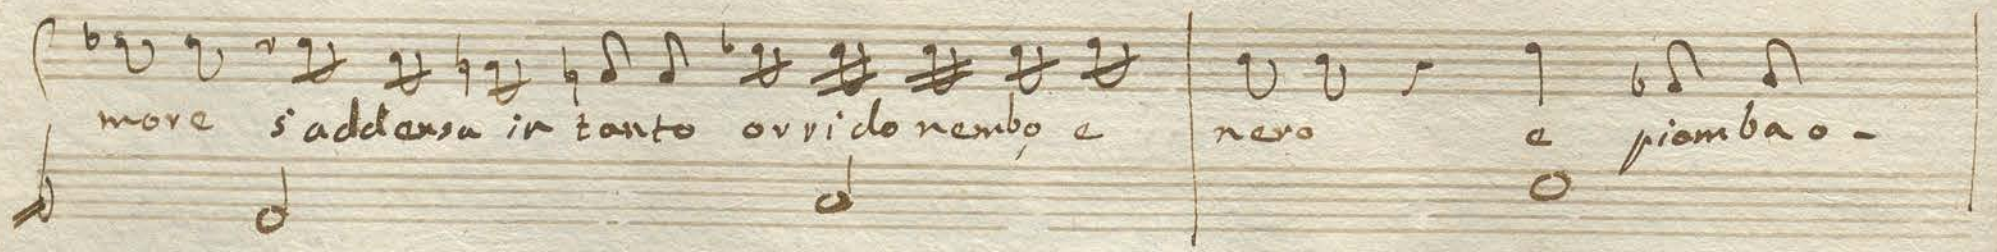 more s'addensa in tanto orrido nembo e nero e piomba o-